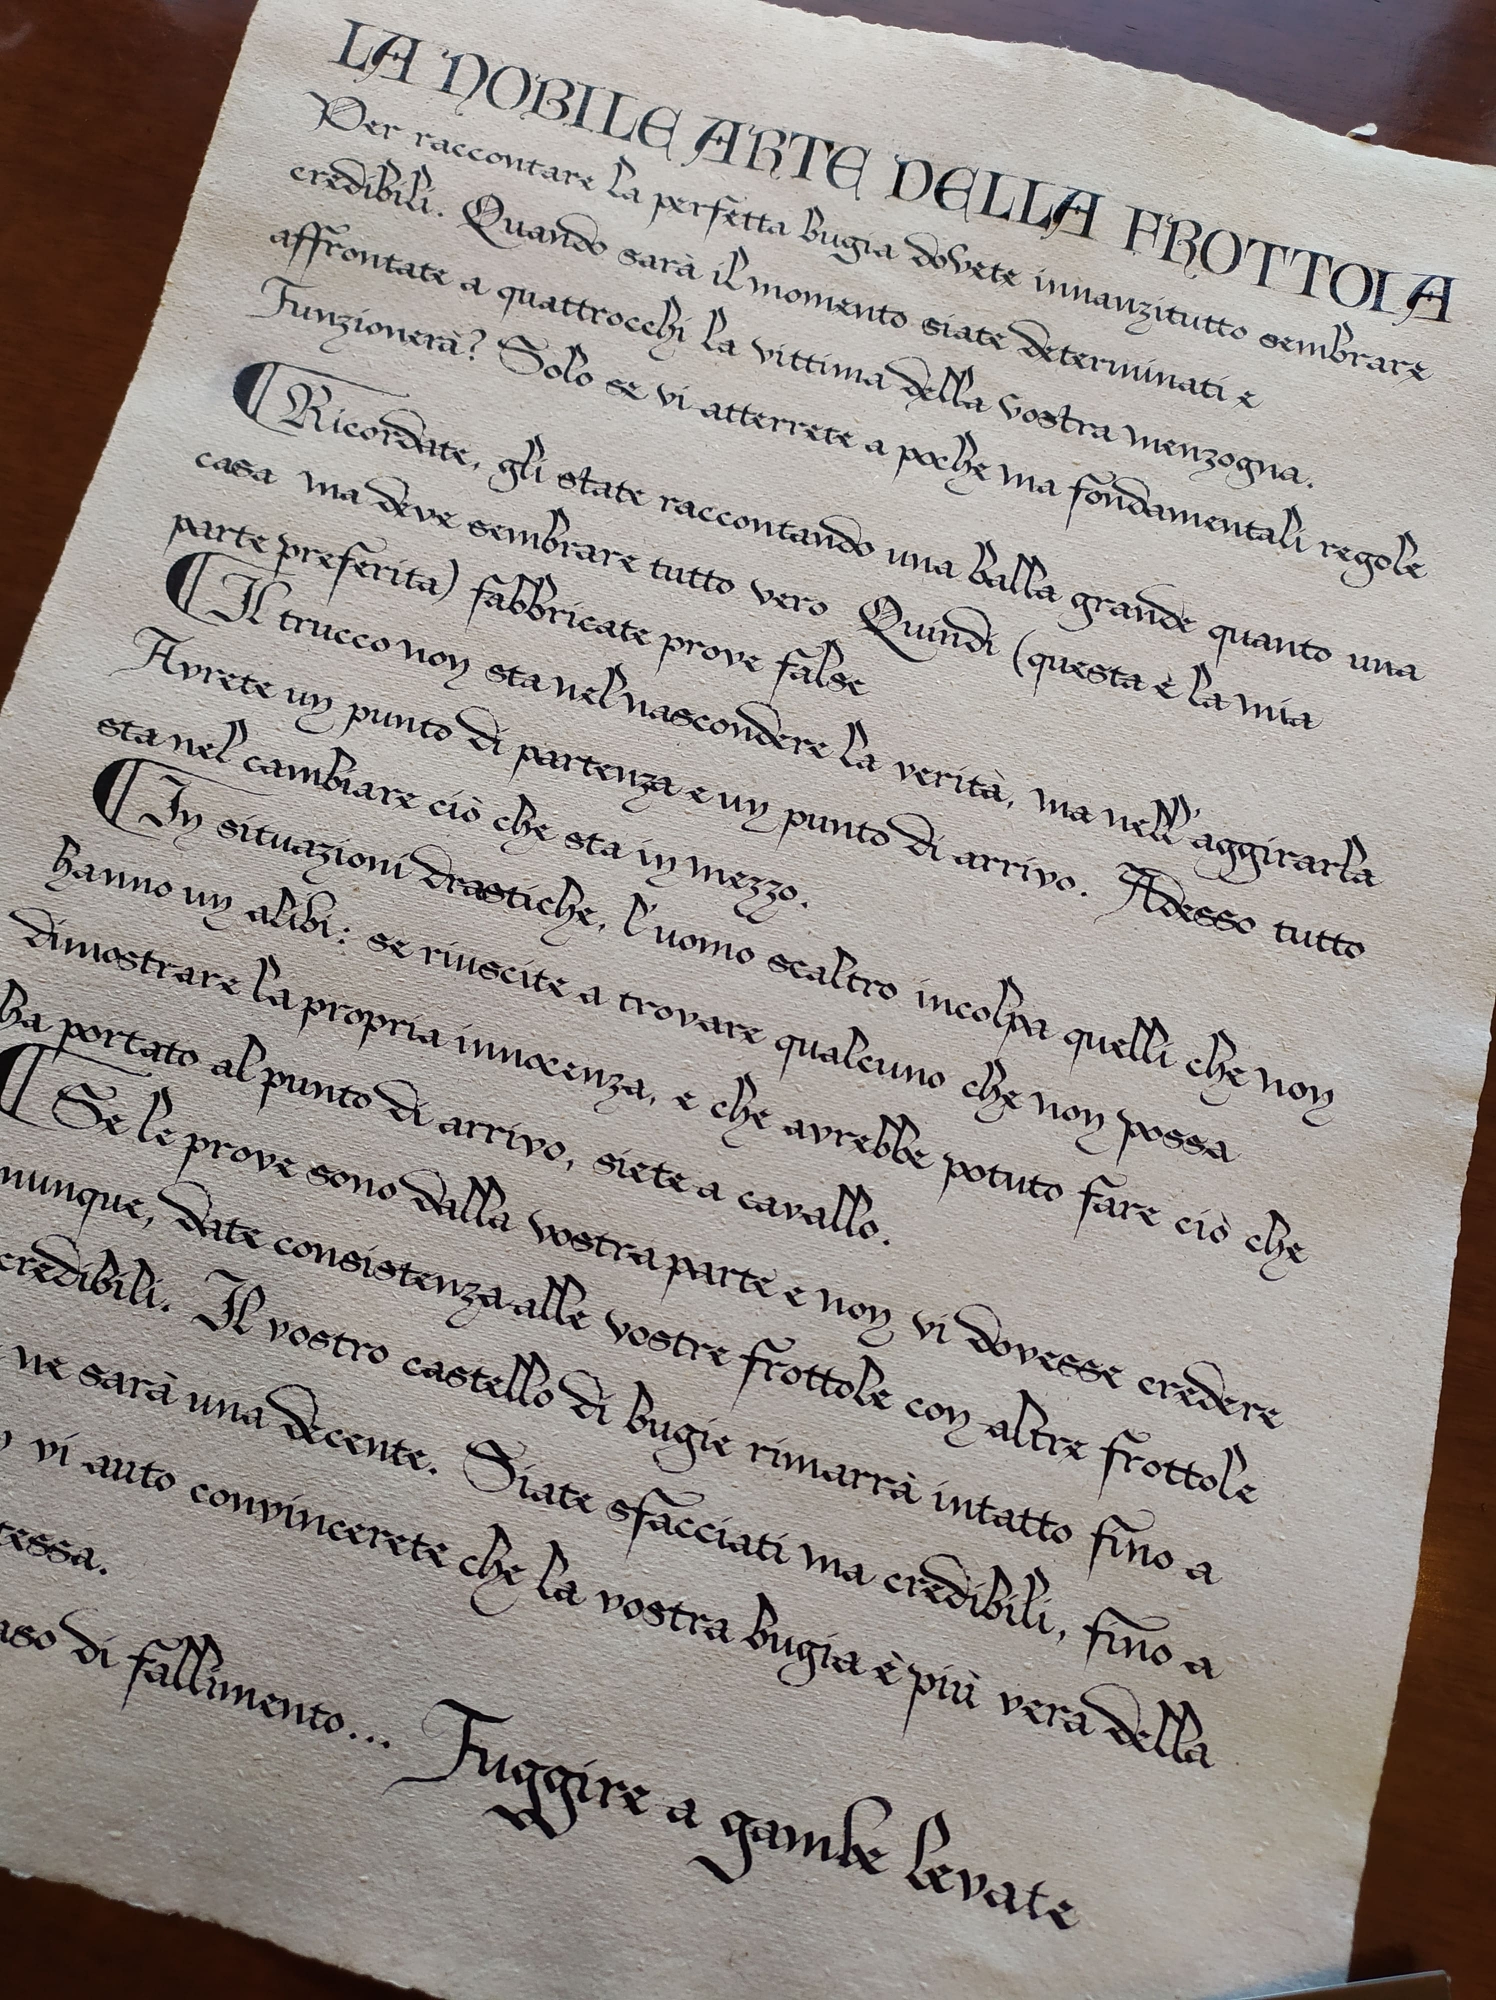 LA NOBILE ARTE DELLA FROTTOLA
Per raccontare la perfetta bugia dovete innanzitutto sembrare
credibili. Quando sarà il momento siate determinati e
affrontate a quattrocchi la vittima della vostra menzogna.
Funzionerà? Solo se vi atterrete a poche ma fondamentali regole
Ricordate, gli state raccontando una balla grande quanto una
casa ma deve sembrare tutto vero Quindi (questa è la mia
parte preferita) fabbricate prove false
Il trucco non sta nel nascondere la verità, ma nell'aggirarla
Avrete un punto di partenza e un punto di arrivo. Adesso tutto
sta nel cambiare ciò che sta in mezzo.
In situazioni drastiche, l'uomo scaltro incolpa quelli che non
hanno un alibi: se riuscite a trovare qualcuno che non possa
dimostrare la propria innocenza, e che avrebbe potuto fare ciò che
ha portato al punto di arrivo, siete a cavallo.
Se le prove sono dalla vostra parte e non vi dovesse credere
nunque, date consistenza alle vostre frottole con altre frottole
credibili. Il vostro castello di bugie rimarrà intatto fino a
ne sarà una decente. Siate sfacciati ma credibili, fino a
vi auto convincerete che la vostra bugia è più vera della
tessa.
aso di fallimento... Fuggire a gambe levate